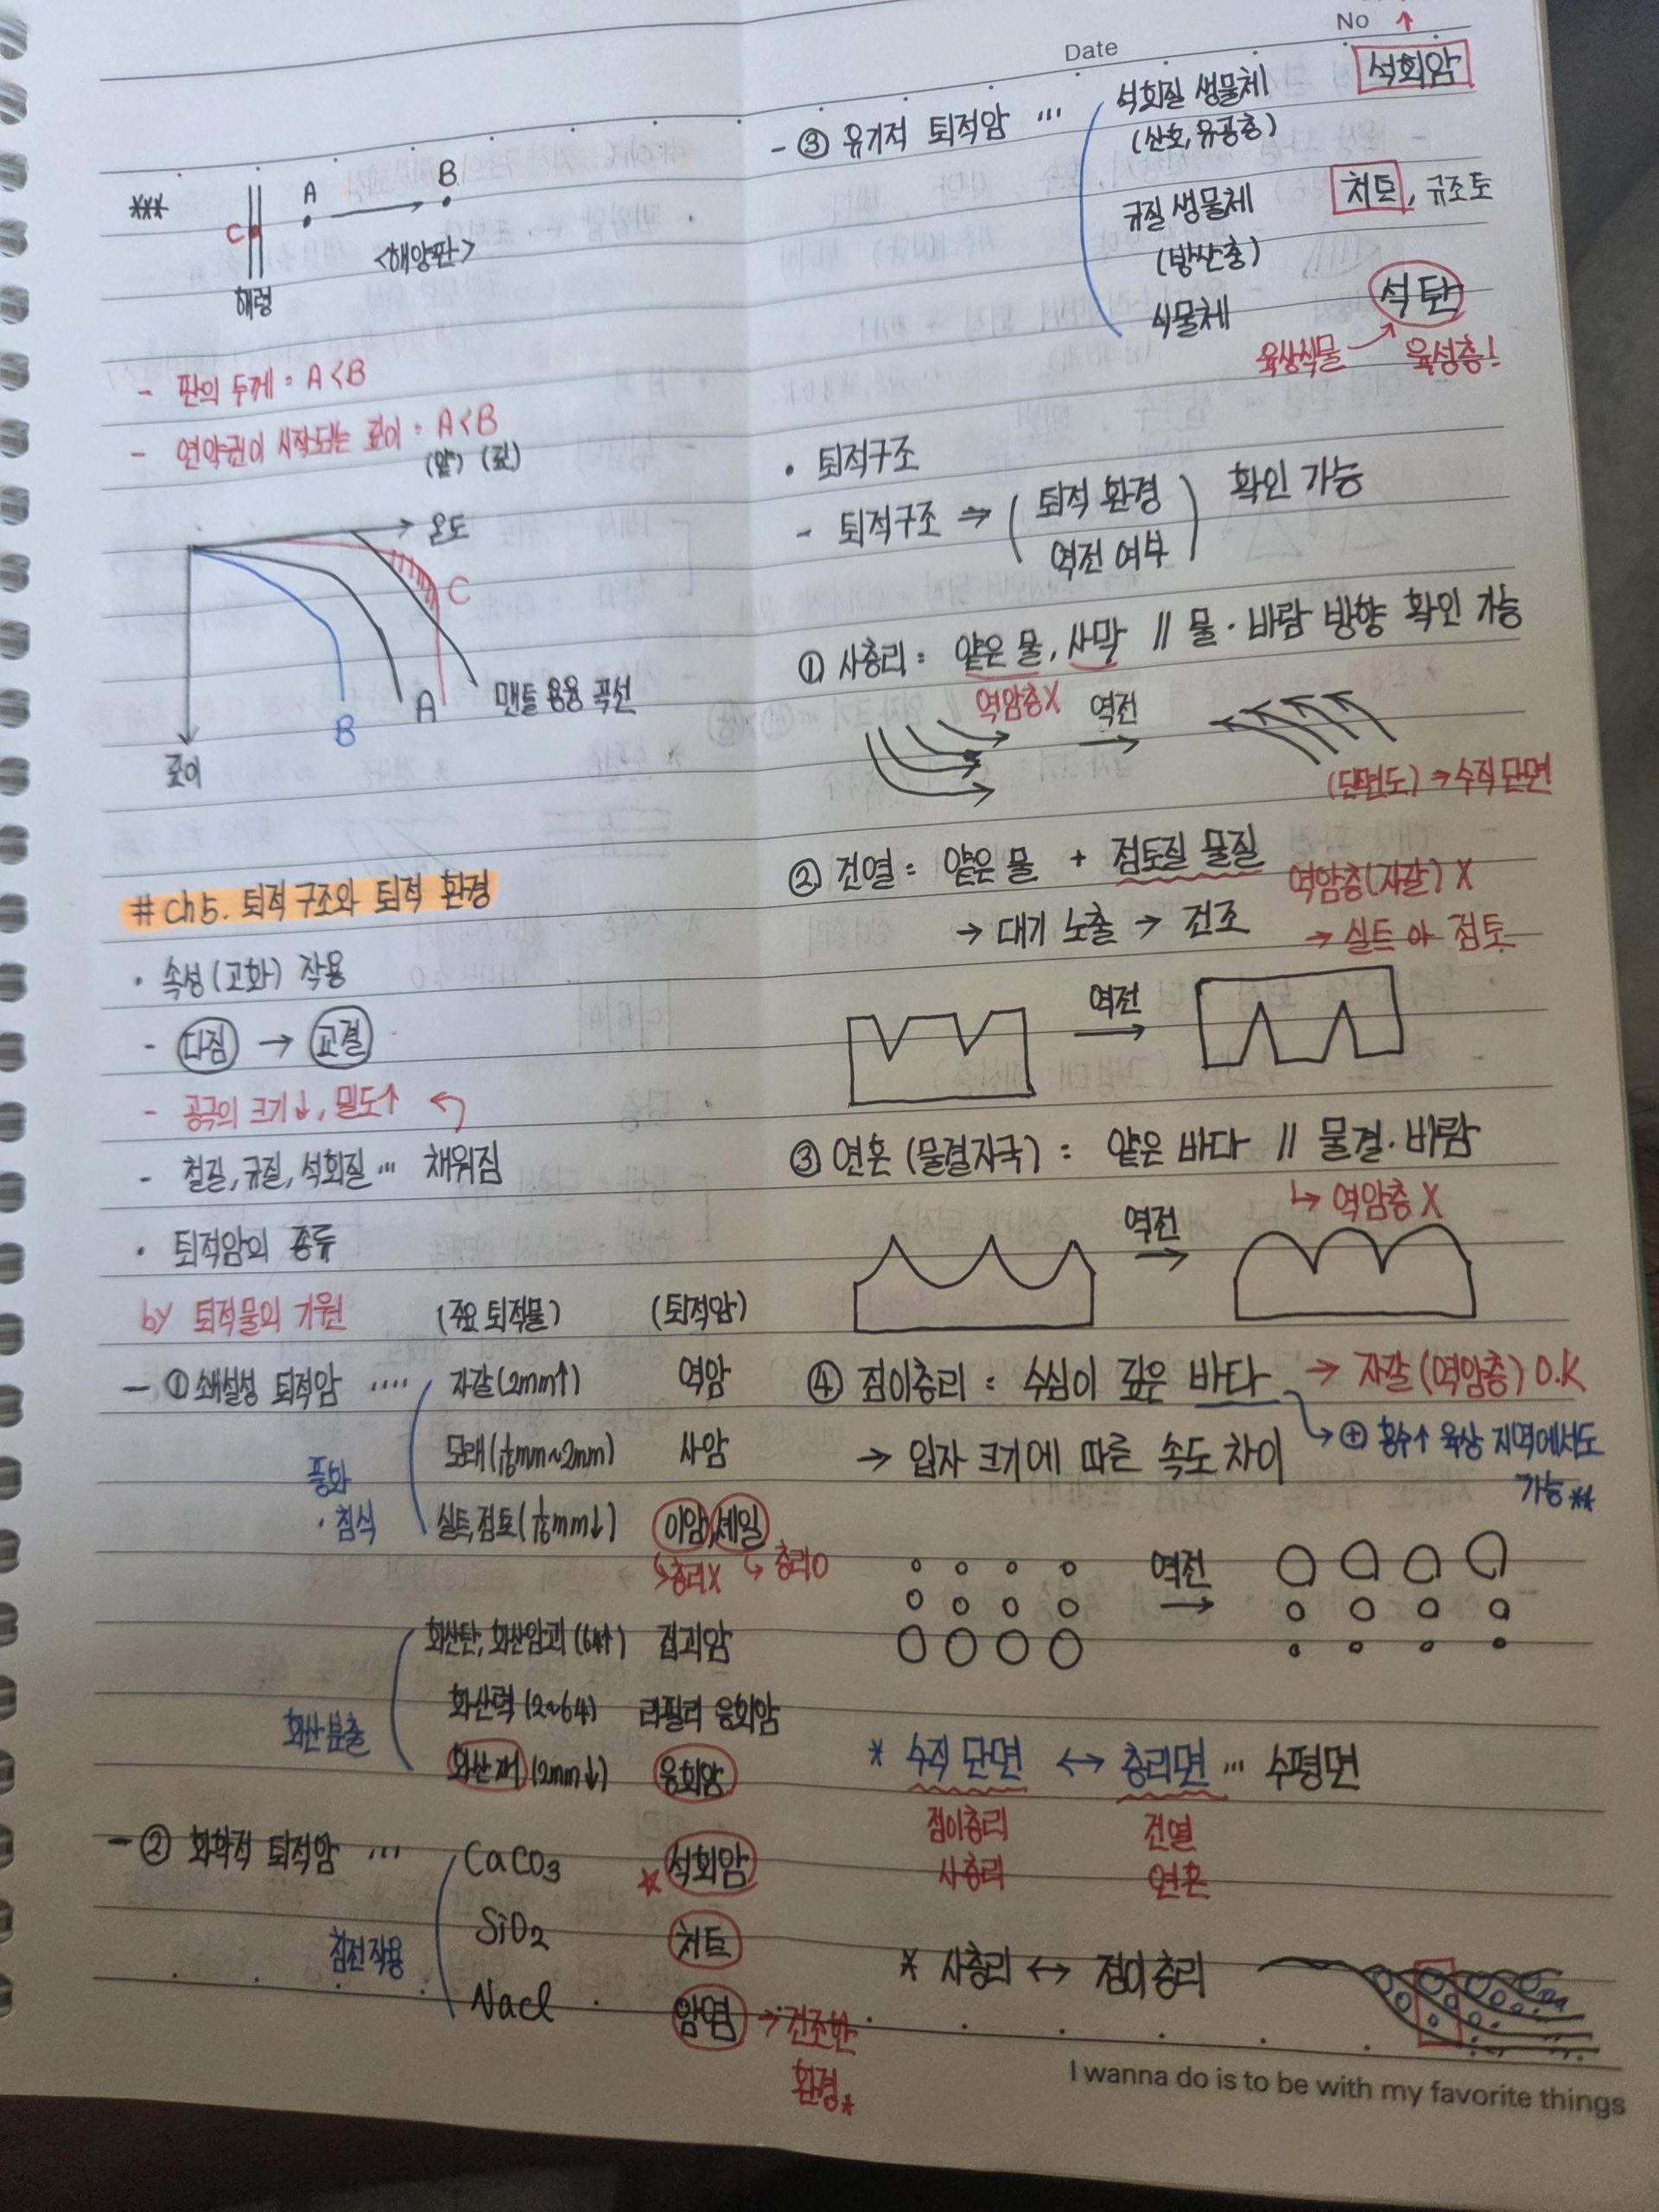 ***
A
B
C
<해양판>
해령
- 판의 두께 : A<B
- 연약권이 시작되는 깊이 : A<B
(얕) (깊)
온도
C
A
B
맨틀 용융 곡선
깊이
# Ch5. 퇴적 구조와 퇴적 환경
· 속성(고화) 작용
- 다짐 → 교결
- 공극의 크기↓, 밀도↑
- 철질, 규질, 석회질 … 채워짐
· 퇴적암의 종류
by 퇴적물의 기원 (주요 퇴적물) (퇴적암)
- ① 쇄설성 퇴적암 ···· 자갈(2mm↑) 역암
모래(1/16mm~2mm) 사암
풍화·침식
실트,점토(1/16mm↓) 이암,셰일
↳층리X ↳층리O
화산탄, 화산암괴(64↑) 집괴암
화산력(2~64) 라필리 응회암
화산분출
화산재(2mm↓) 응회암
- ② 화학적 퇴적암 … CaCO3 ☆ 석회암
SiO2 처트
침전작용
NaCl 암염 → 건조한
환경*
Date
No ↑
- ③ 유기적 퇴적암 … 석회질 생물체 석회암
(산호,유공충)
규질 생물체 처트, 규조토
(방산충)
식물체 석탄
육상식물 육성층!
· 퇴적구조
- 퇴적구조 ⇒ (퇴적 환경 확인 가능
역전 여부)
① 사층리 : 얕은 물, 사막 // 물·바람 방향 확인 가능
역암층X
역전
→
(단면도) → 수직단면
② 건열 : 얕은 물 + 점토질 물질 역암층(자갈) X
→ 대기 노출 → 건조 → 실트 or 점토
역전
→
③ 연흔 (물결자국) : 얕은 바다 // 물결·바람
↳ 역암층 X
역전
→
④ 점이층리 : 수심이 깊은 바다 → 자갈(역암층) O.K
→ 입자 크기에 따른 속도 차이
↳ ⊕ 홍수↑ 육상 지역에서도
가능**
역전
→
* 수직 단면 ↔ 층리면 … 수평면
점이층리 건열
사층리 연흔
* 사층리 ↔ 점이층리
I wanna do is to be with my favorite things